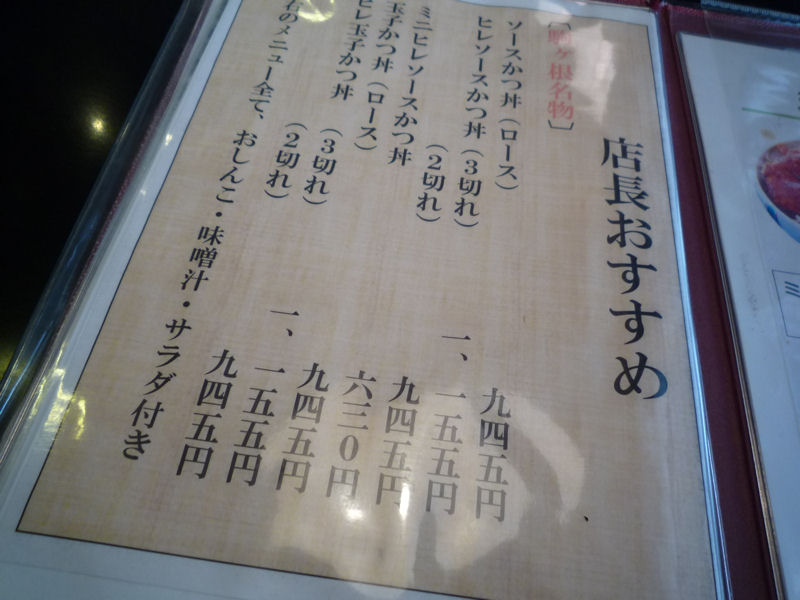 店長おすすめ
〔駒ヶ根名物〕
ソースかつ丼(ロース) 九四五円
ヒレソースかつ丼(3切れ) 一、一五五円
(2切れ) 九四五円
ミニヒレソースかつ丼 六三〇円
玉子かつ丼(ロース) 九四五円
ヒレ玉子かつ丼 (3切れ) 一、一五五円
(2切れ) 九四五円
右のメニュー全て、おしんこ・味噌汁・サラダ付き
ミ